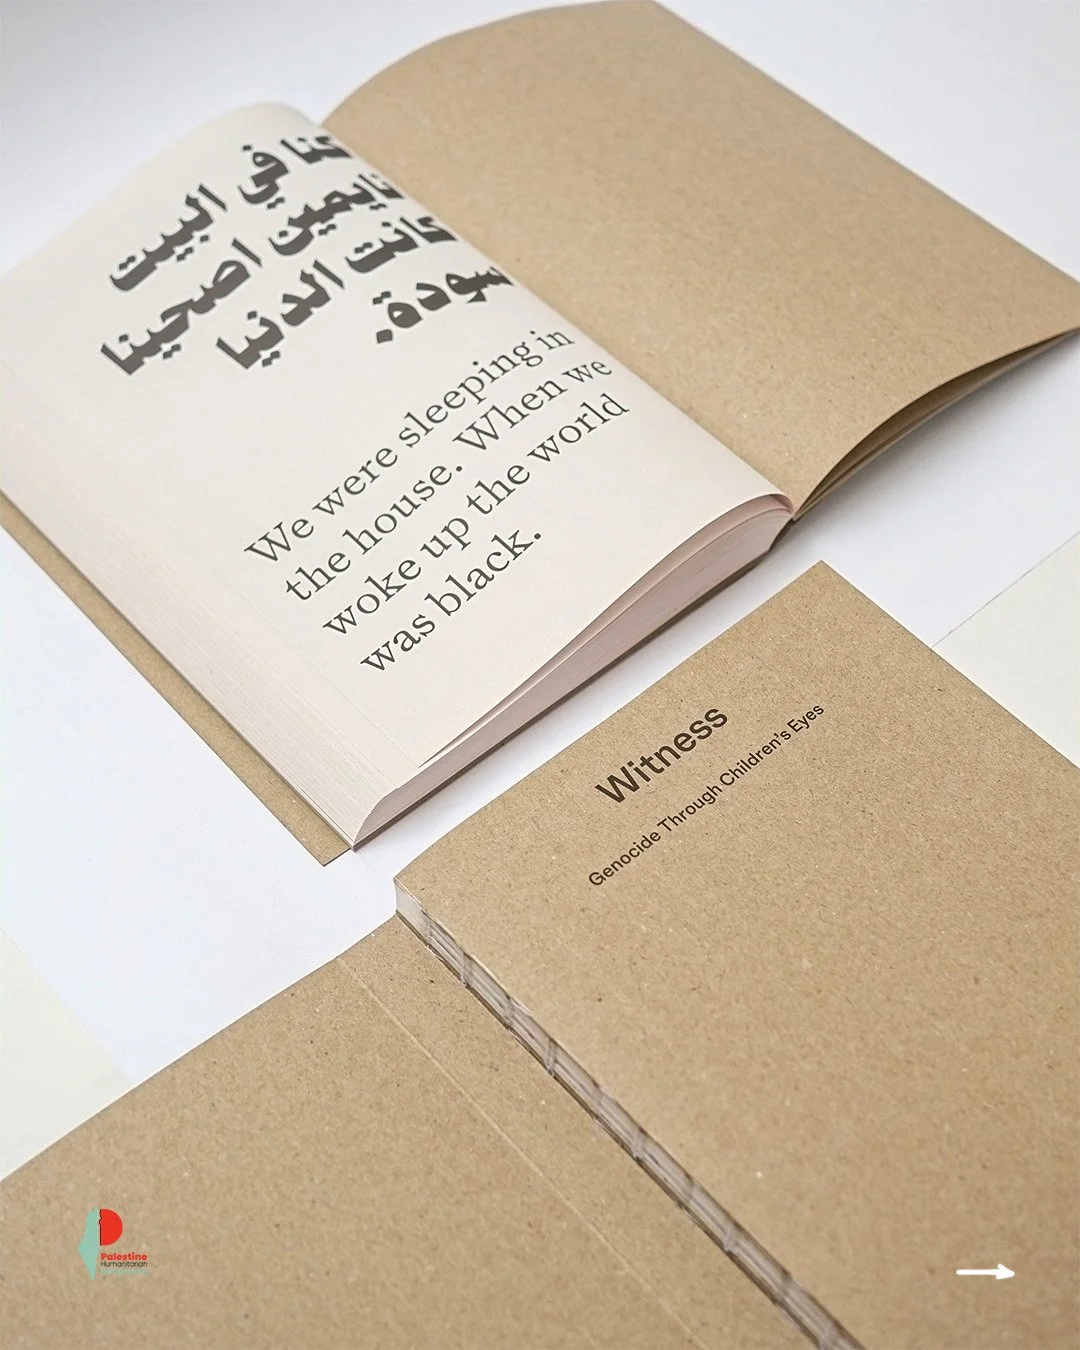 كنا في البيت
نايمين اصحينا
كانت الدنيا
سودة.
We were sleeping in
the house. When we
woke up the world
was black.
Witness
Genocide Through Children's Eyes
Palestine
Humanitarian